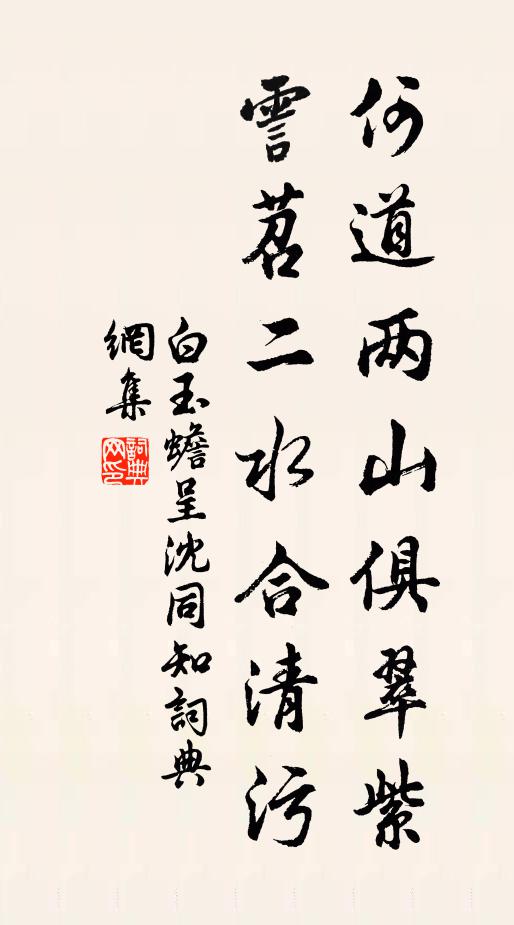 何道两山俱翠紫
霅苕二水合清污
白玉蟾呈沈同知詞典
網集
詞典网印